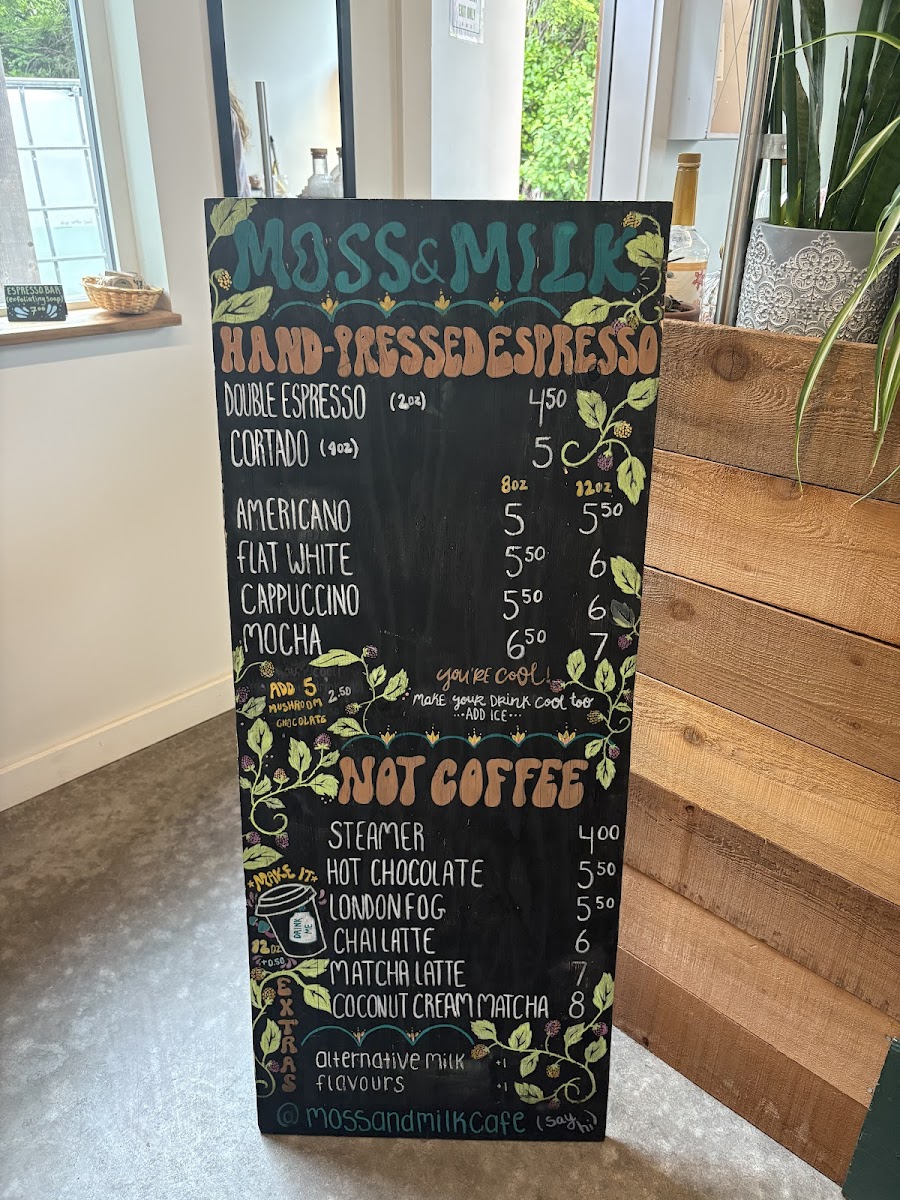 EXIT ONLY
ESPRESSO BAR
(exfoliating soap)
7.00
MOSS & MILK
HAND-PRESSED ESPRESSO
DOUBLE ESPRESSO (2oz) 4 50
CORTADO (4oz) 5
8oz 12oz
AMERICANO 5 5 50
FLAT WHITE 5 50 6
CAPPUCCINO 5 50 6
MOCHA 6 50 7
ADD 5 2.50
MUSHROOM
CHOCOLATE
you're cool!
Make your drink cool too
...ADD ICE...
NOT COFFEE
STEAMER 4 00
HOT CHOCOLATE 5 50
LONDON FOG 5 50
CHAI LATTE 6
MATCHA LATTE 7
COCONUT CREAM MATCHA 8
*MAKE IT*
DRINK ME
12oz
+0.50
EXTRAS
alternative milk +1
flavours +1
@mossandmilkcafe (say hi)